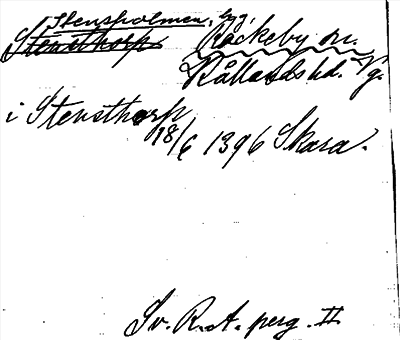 Stensholmen, egj.
Stensthorp Räckeby sn.
Kållands hd. Vg.
i Stensthorp
18/6 1396 Skara.
Sv. R. A. perg. II